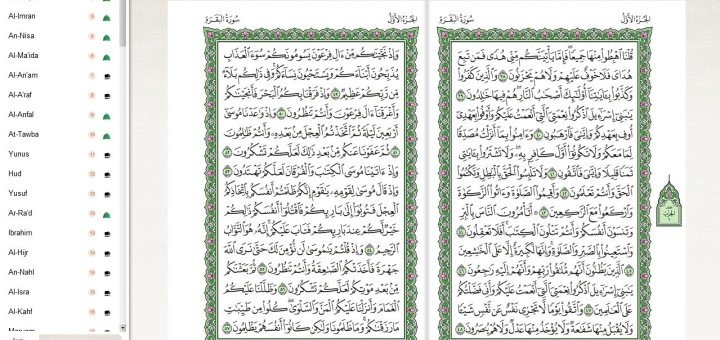 Al-Imran 3
An-Nisa 4
Al-Ma'ida 6
Al-An'am 7
Al-A'raf 8
Al-Anfal 9
At-Tawba 10
Yunus 11
Hud
Yusuf 12
Ar-Ra'd 13
Ibrahim 13
Al-Hijr 14
An-Nahl 14
Al-Isra 15
Al-Kahf 15
الجزء الأول سورة البقرة
قُلْنَا ٱهْبِطُوا۟ مِنْهَا جَمِيعًا فَإِمَّا يَأْتِيَنَّكُم مِّنِّى هُدًى فَمَن تَبِعَ
هُدَاىَ فَلَا خَوْفٌ عَلَيْهِمْ وَلَا هُمْ يَحْزَنُونَ ٣٨ وَٱلَّذِينَ كَفَرُوا۟
وَكَذَّبُوا۟ بِـَٔايَٰتِنَآ أُو۟لَٰٓئِكَ أَصْحَٰبُ ٱلنَّارِ هُمْ فِيهَا خَٰلِدُونَ ٣٩
يَٰبَنِىٓ إِسْرَٰٓءِيلَ ٱذْكُرُوا۟ نِعْمَتِىَ ٱلَّتِىٓ أَنْعَمْتُ عَلَيْكُمْ وَأَوْفُوا۟ بِعَهْدِىٓ
أُوفِ بِعَهْدِكُمْ وَإِيَّٰىَ فَٱرْهَبُونِ ٤٠ وَءَامِنُوا۟ بِمَآ أَنزَلْتُ مُصَدِّقًا
لِّمَا مَعَكُمْ وَلَا تَكُونُوٓا۟ أَوَّلَ كَافِرٍۭ بِهِۦ وَلَا تَشْتَرُوا۟ بِـَٔايَٰتِى
ثَمَنًا قَلِيلًا وَإِيَّٰىَ فَٱتَّقُونِ ٤١ وَلَا تَلْبِسُوا۟ ٱلْحَقَّ بِٱلْبَٰطِلِ وَتَكْتُمُوا۟
ٱلْحَقَّ وَأَنتُمْ تَعْلَمُونَ ٤٢ وَأَقِيمُوا۟ ٱلصَّلَوٰةَ وَءَاتُوا۟ ٱلزَّكَوٰةَ
وَٱرْكَعُوا۟ مَعَ ٱلرَّٰكِعِينَ ٤٣ أَتَأْمُرُونَ ٱلنَّاسَ بِٱلْبِرِّ
وَتَنسَوْنَ أَنفُسَكُمْ وَأَنتُمْ تَتْلُونَ ٱلْكِتَٰبَ أَفَلَا تَعْقِلُونَ ٤٤
وَٱسْتَعِينُوا۟ بِٱلصَّبْرِ وَٱلصَّلَوٰةِ وَإِنَّهَا لَكَبِيرَةٌ إِلَّا عَلَى ٱلْخَٰشِعِينَ
٤٥ ٱلَّذِينَ يَظُنُّونَ أَنَّهُم مُّلَٰقُوا۟ رَبِّهِمْ وَأَنَّهُمْ إِلَيْهِ رَٰجِعُونَ ٤٦
يَٰبَنِىٓ إِسْرَٰٓءِيلَ ٱذْكُرُوا۟ نِعْمَتِىَ ٱلَّتِىٓ أَنْعَمْتُ عَلَيْكُمْ وَأَنِّى فَضَّلْتُكُمْ
عَلَى ٱلْعَٰلَمِينَ ٤٧ وَٱتَّقُوا۟ يَوْمًا لَّا تَجْزِى نَفْسٌ عَن نَّفْسٍ شَيْـًٔا
وَلَا يُقْبَلُ مِنْهَا شَفَٰعَةٌ وَلَا يُؤْخَذُ مِنْهَا عَدْلٌ وَلَا هُمْ يُنصَرُونَ ٤٨
الجزء الأول سورة البقرة
وَإِذْ نَجَّيْنَٰكُم مِّنْ ءَالِ فِرْعَوْنَ يَسُومُونَكُمْ سُوٓءَ ٱلْعَذَابِ
يُذَبِّحُونَ أَبْنَآءَكُمْ وَيَسْتَحْيُونَ نِسَآءَكُمْ وَفِى ذَٰلِكُم بَلَآءٌ
مِّن رَّبِّكُمْ عَظِيمٌ ٤٩ وَإِذْ فَرَقْنَا بِكُمُ ٱلْبَحْرَ فَأَنجَيْنَٰكُمْ
وَأَغْرَقْنَآ ءَالَ فِرْعَوْنَ وَأَنتُمْ تَنظُرُونَ ٥٠ وَإِذْ وَٰعَدْنَا مُوسَىٰٓ
أَرْبَعِينَ لَيْلَةً ثُمَّ ٱتَّخَذْتُمُ ٱلْعِجْلَ مِنۢ بَعْدِهِۦ وَأَنتُمْ ظَٰلِمُونَ
٥١ ثُمَّ عَفَوْنَا عَنكُم مِّنۢ بَعْدِ ذَٰلِكَ لَعَلَّكُمْ تَشْكُرُونَ ٥٢
وَإِذْ ءَاتَيْنَا مُوسَى ٱلْكِتَٰبَ وَٱلْفُرْقَانَ لَعَلَّكُمْ تَهْتَدُونَ ٥٣
وَإِذْ قَالَ مُوسَىٰ لِقَوْمِهِۦ يَٰقَوْمِ إِنَّكُمْ ظَلَمْتُمْ أَنفُسَكُم بِٱتِّخَاذِكُمُ
ٱلْعِجْلَ فَتُوبُوٓا۟ إِلَىٰ بَارِئِكُمْ فَٱقْتُلُوٓا۟ أَنفُسَكُمْ ذَٰلِكُمْ
خَيْرٌ لَّكُمْ عِندَ بَارِئِكُمْ فَتَابَ عَلَيْكُمْ إِنَّهُۥ هُوَ ٱلتَّوَّابُ
ٱلرَّحِيمُ ٥٤ وَإِذْ قُلْتُمْ يَٰمُوسَىٰ لَن نُّؤْمِنَ لَكَ حَتَّىٰ نَرَى ٱللَّهَ
جَهْرَةً فَأَخَذَتْكُمُ ٱلصَّٰعِقَةُ وَأَنتُمْ تَنظُرُونَ ٥٥ ثُمَّ بَعَثْنَٰكُم
مِّنۢ بَعْدِ مَوْتِكُمْ لَعَلَّكُمْ تَشْكُرُونَ ٥٦ وَظَلَّلْنَا عَلَيْكُمُ
ٱلْغَمَامَ وَأَنزَلْنَا عَلَيْكُمُ ٱلْمَنَّ وَٱلسَّلْوَىٰ كُلُوا۟ مِن طَيِّبَٰتِ
مَا رَزَقْنَٰكُمْ وَمَا ظَلَمُونَا وَلَٰكِن كَانُوٓا۟ أَنفُسَهُمْ يَظْلِمُونَ ٥٧